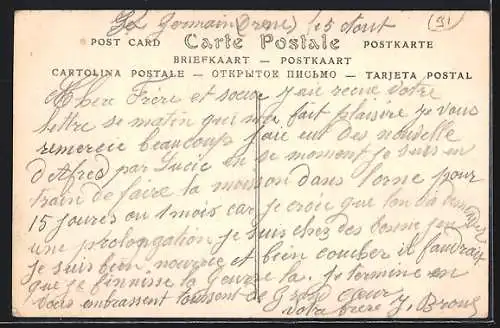 St Germain (Orne) 15 Aout
(91)
POST CARD Carte Postale POSTKARTE
BRIEFKAART — POSTKAART
CARTOLINA POSTALE — ОТКРЫТОК ПИСЬМО — TARJETA POSTAL
Chere Frère et soeur j'ai recue votre
lettre se matin qui ma fait plaisire je vous
remercie beaucoup j'aie eut des nouvelle
d'Alfred par Lucie en se moment je suis en
train de faire la moisson dans l'orne pour
15 joures ou 1 mois car je croie que l'on va demander
une prolongation je suis chez des bonne
je suis bien nourrie et bien coucher il faudrait
que je finnisse la Geurre la. je termine en
vous embrassent toussent de Gros coeur
votre frère J.